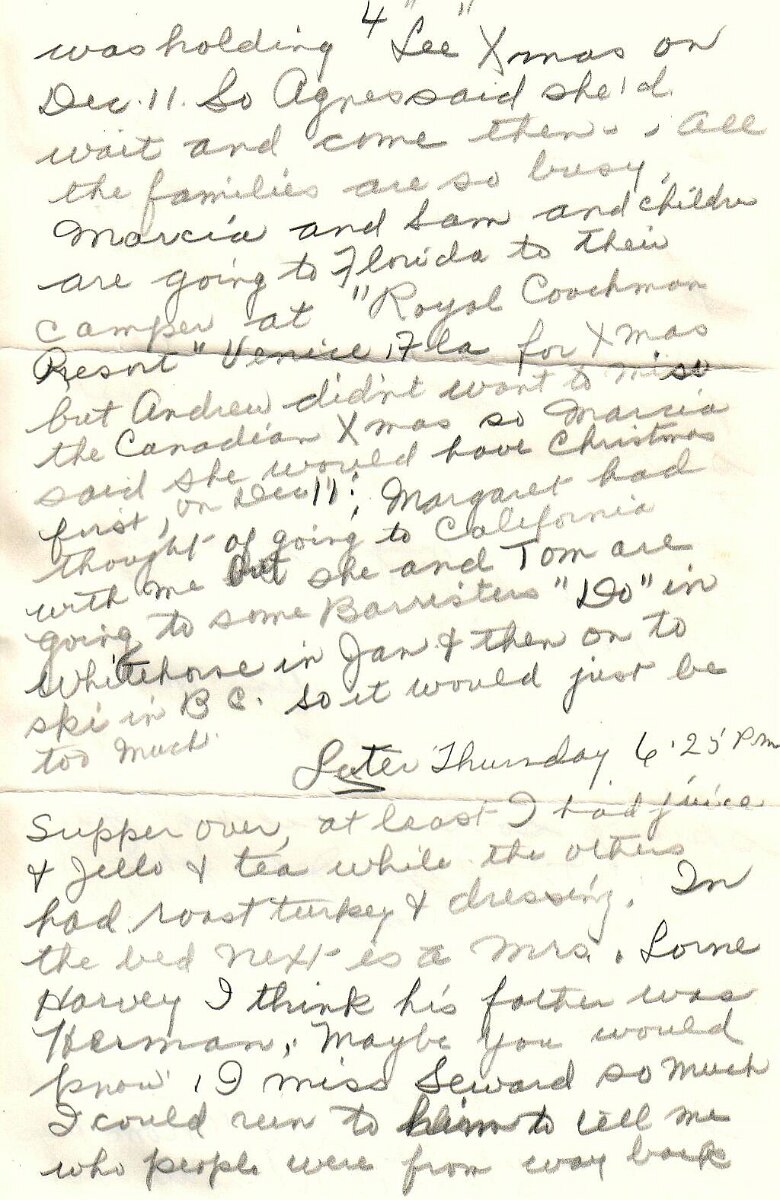 4
was holding "Lee" Xmas on
Dec. 11. So Agnes said she'd
wait and come then. All
the families are so busy,
Marcia and Sam and children
are going to Florida to their
camper at "Royal Coachman
Resort" Venice, Fla for Xmas
but Andrew didn't want to miss
the Canadian Xmas so Marcia
said she would have Christmas
first, on Dec 11; Margaret had
thought of going to California
with me but she and Tom are
going to some Barristers "Do" in
Whitehorse in Jan & then on to
ski in B C. so it would just be
too much.
Later Thursday 6.25 P.M
Supper over, at least I had juice
& Jello & tea while the others
had roast turkey & dressing. In
the bed next is a Mrs. Lorne
Harvey I think his father was
Herman, Maybe you would
know. I miss Seward so much
I could run to him to tell me
who people were from way back